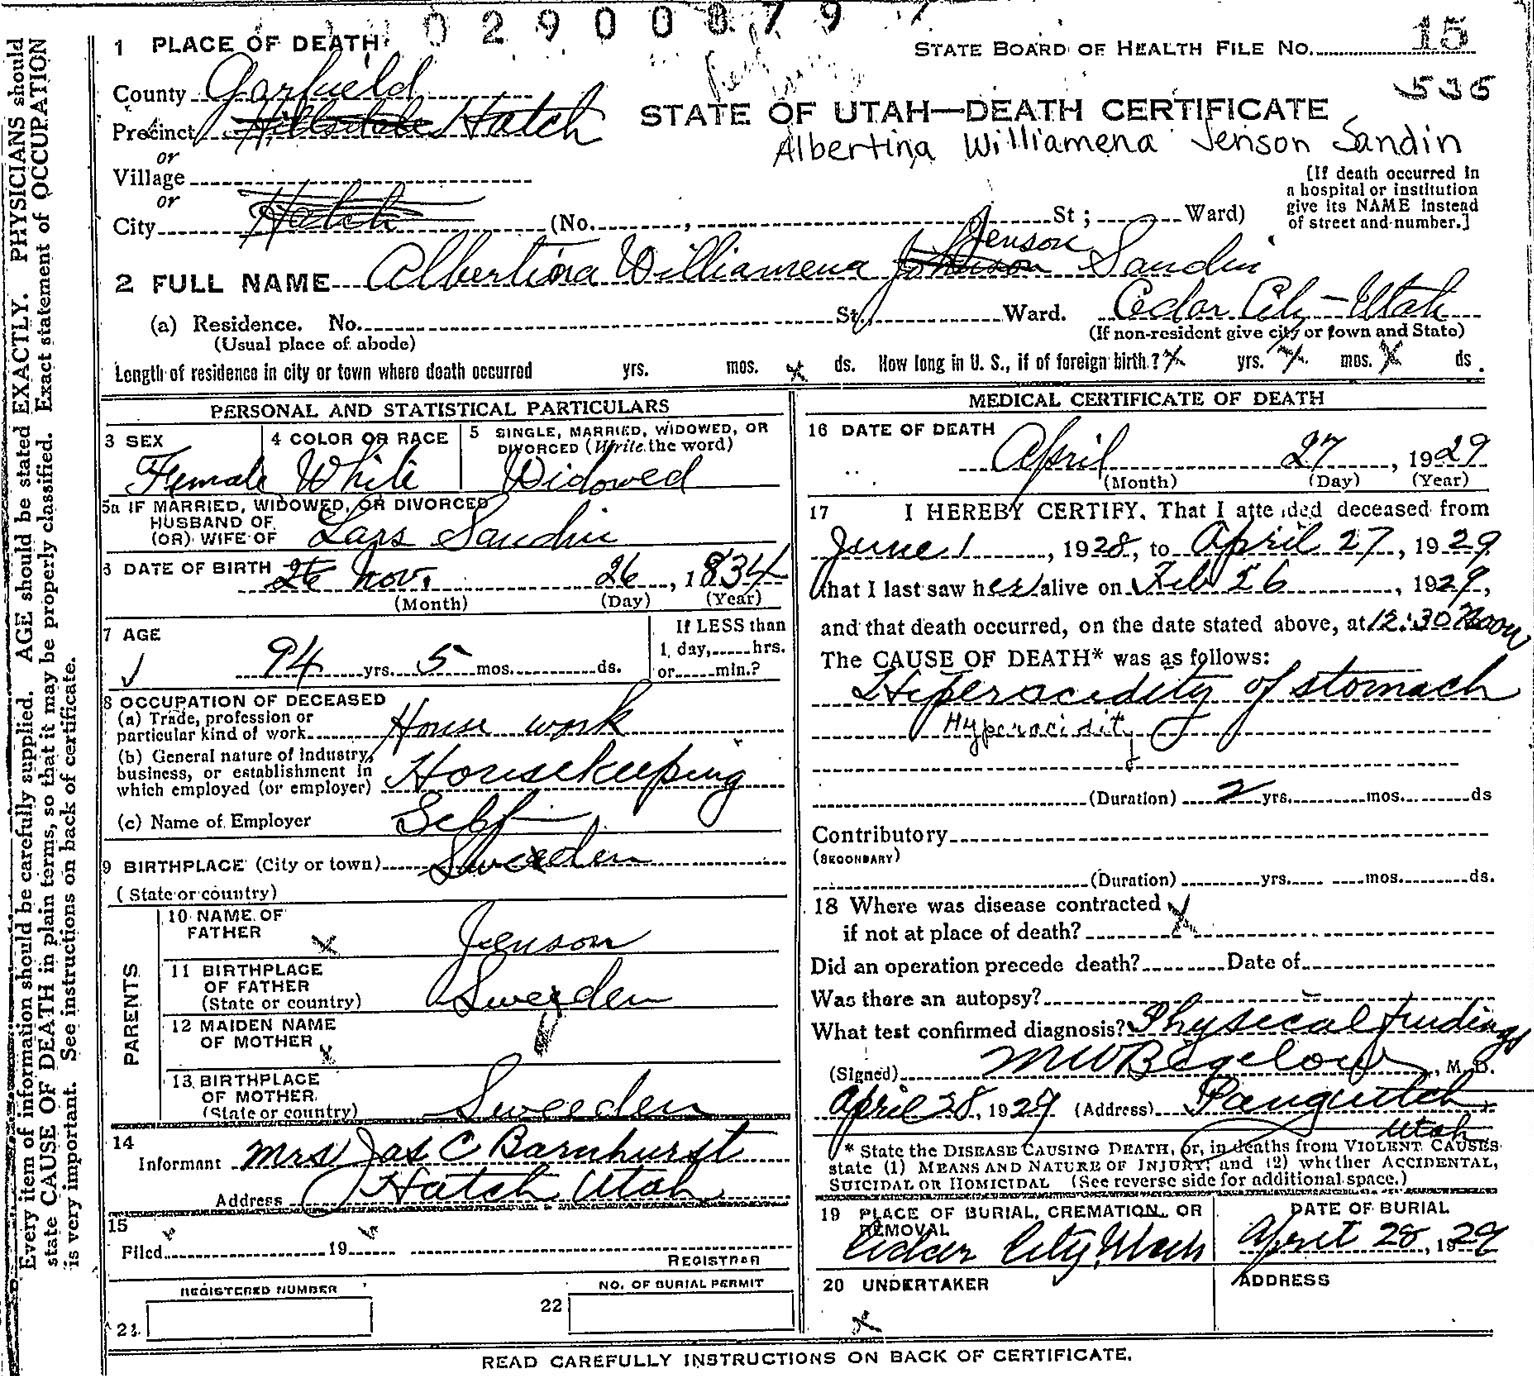 02900079
1 PLACE OF DEATH
STATE BOARD OF HEALTH FILE No. 15
535
County Garfield
Precinct Hillsdale Hatch
or
Village
or
City Hatch (No. , St ; Ward)
STATE OF UTAH—DEATH CERTIFICATE
Albertina Williamena Jenson Sandin
[If death occurred in
a hospital or institution
give its NAME instead
of street and number.]
Jenson
2 FULL NAME Albertina Williamena Johnson Sandin
(a) Residence. No. St, Ward. Cedar City - Utah
(Usual place of abode) (If non-resident give city or town and State)
Length of residence in city or town where death occurred yrs. mos. x ds. How long in U. S., if of foreign birth? x yrs. x mos. x ds.
PERSONAL AND STATISTICAL PARTICULARS
3 SEX
Female
4 COLOR OR RACE
White
5 SINGLE, MARRIED, WIDOWED, OR
DIVORCED (Write the word)
Widowed
5a IF MARRIED, WIDOWED, OR DIVORCED
HUSBAND OF
(OR) WIFE OF Lars Sandin
6 DATE OF BIRTH 26 Nov. 26, 1834
(Month) (Day) (Year)
7 AGE
94 yrs. 5 mos. ds.
If LESS than
1 day, hrs.
or min.?
8 OCCUPATION OF DECEASED
(a) Trade, profession or
particular kind of work House work
(b) General nature of industry,
business, or establishment in
which employed (or employer) Housekeeping
(c) Name of Employer Self
9 BIRTHPLACE (City or town) Sweeden
(State or country)
PARENTS
10 NAME OF
FATHER x Jenson
11 BIRTHPLACE
OF FATHER
(State or country) Sweeden
12 MAIDEN NAME
OF MOTHER x
13 BIRTHPLACE
OF MOTHER
(State or country) Sweeden
14
Informant Mrs Jas C Barnhurst
Address Hatch Utah
15
Filed 19
REGISTRAR
REGISTERED NUMBER
21
NO. OF BURIAL PERMIT
22
MEDICAL CERTIFICATE OF DEATH
16 DATE OF DEATH
April 27, 1929
(Month) (Day) (Year)
17 I HEREBY CERTIFY, That I attended deceased from
June 1, 1928, to April 27, 1929
that I last saw her alive on Feb 26, 1929,
and that death occurred, on the date stated above, at 12:30 Noon
The CAUSE OF DEATH* was as follows:
Hiperacidity of stomach
Hyperacidity
(Duration) 2 yrs. mos. ds
Contributory
(SECONDARY)
(Duration) yrs. mos. ds.
18 Where was disease contracted
if not at place of death? x
Did an operation precede death? Date of
Was there an autopsy?
What test confirmed diagnosis? Physical findings
(Signed) M W Bigelow, M. D.
April 28, 1929 (Address) Panguitch
Utah
* State the DISEASE CAUSING DEATH, or, in deaths from VIOLENT CAUSES
state (1) MEANS AND NATURE OF INJURY; and (2) whether ACCIDENTAL,
SUICIDAL OR HOMICIDAL (See reverse side for additional space.)
19 PLACE OF BURIAL, CREMATION, OR
REMOVAL
Cedar City, Utah
DATE OF BURIAL
April 28, 1929
20 UNDERTAKER
x
ADDRESS
READ CAREFULLY INSTRUCTIONS ON BACK OF CERTIFICATE.
Every item of information should be carefully supplied. AGE should be stated EXACTLY. PHYSICIANS should
state CAUSE OF DEATH in plain terms, so that it may be properly classified. Exact statement of OCCUPATION
is very important. See instructions on back of certificate.